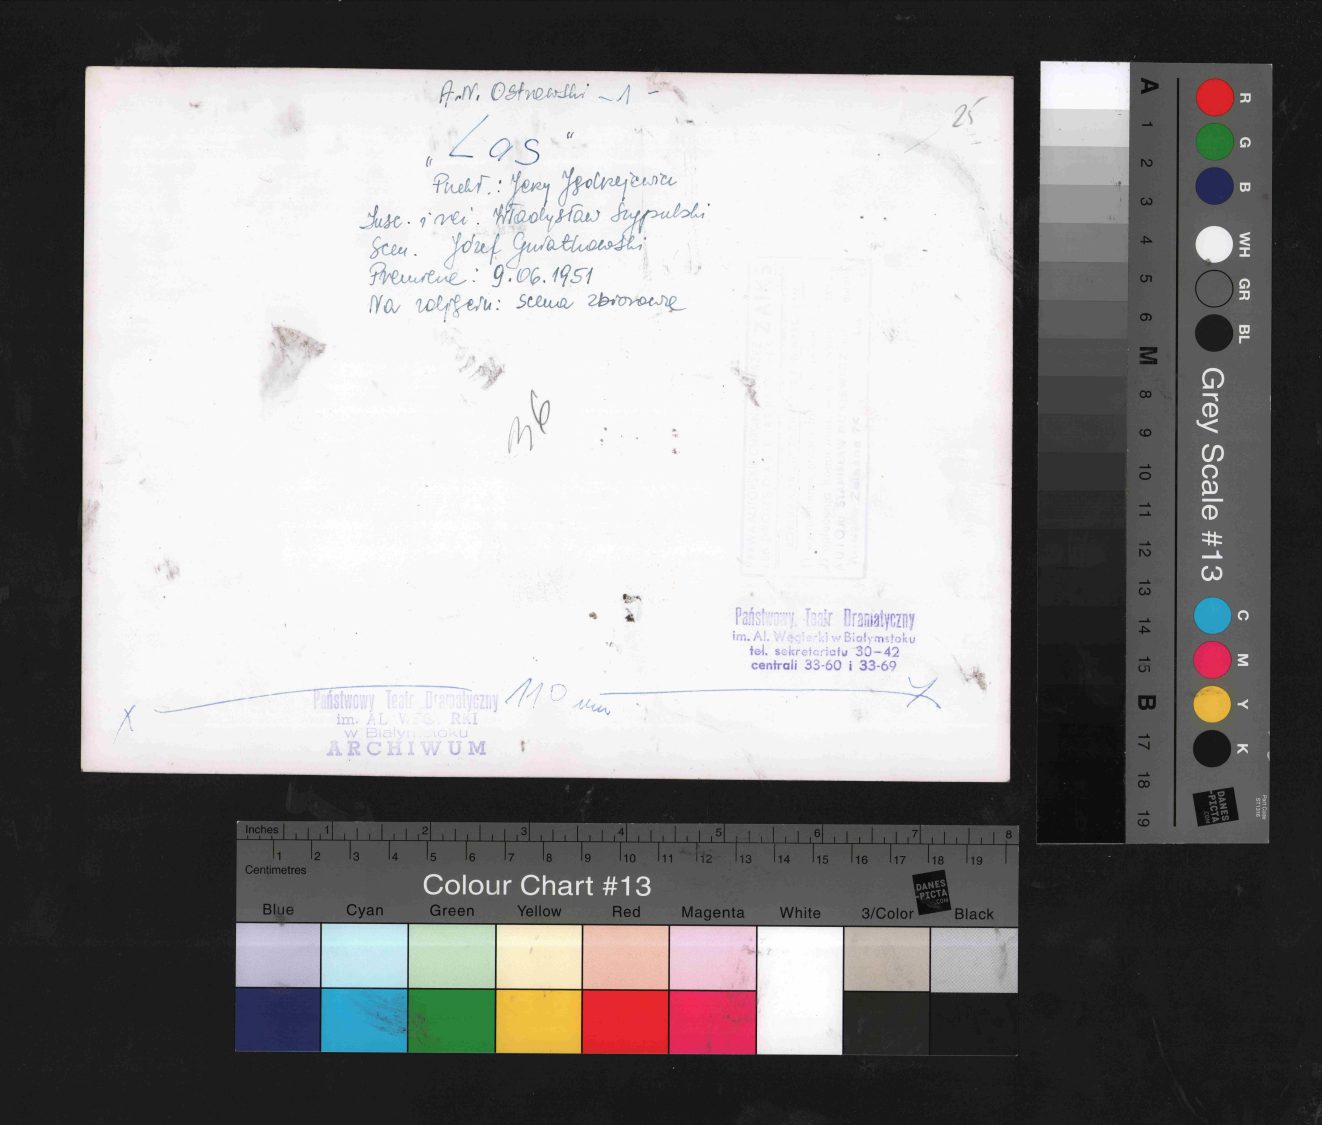 A.N. Ostrowski - 1 -
25
„Las"
Przekł.: Jerzy Jędrzejewicz
Insc. i reż. Władysław Szypulski
Scen. Józef Gwiatkowski
Premiera: 9.06.1951
Na zdjęciu: scena zbiorowa
Państwowy Teatr Dramatyczny
im. Al. Węgierki w Białymstoku
tel. sekretariatu 30-42
centrali 33-60 i 33-69
x 110 mm x
Państwowy Teatr Dramatyczny
im. AL WĘG RKI
w Białymstoku
ARCHIWUM
A 1 2 3 4 5 6 M 8 9 10 11 12 13 14 15 B 17 18 19
R G B WH GR BL
Grey Scale #13
C M Y K
DANES
-PICTA
.COM
Part Code
ST1316
Inches 1 2 3 4 5 6 7 8
1 2 3 4 5 6 7 8 9 10 11 12 13 14 15 16 17 18 19
Centimetres
Colour Chart #13
DANES
-PICTA
.COM
Blue Cyan Green Yellow Red Magenta White 3/Color Black